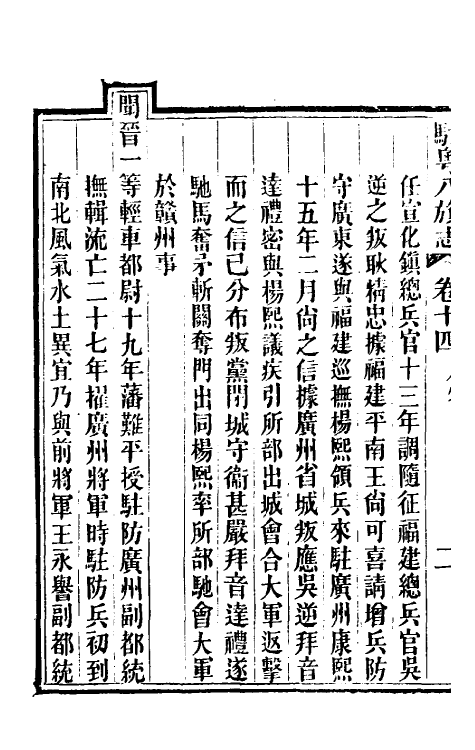 駐粵八旗志 卷十四 二
任宣化鎮總兵官十三年調隨征福建總兵官吳
逆之叛耿精忠據福建平南王尙可喜請增兵防
守廣東遂與福建巡撫楊熙領兵來駐廣州康熙
十五年二月尙之信據廣州省城叛應吳逆拜音
達禮密與楊熙議疾引所部出城會合大軍返擊
而之信已分布叛黨閉城守衞甚嚴拜音達禮遂
馳馬奮矛斬關奪門出同楊熙率所部馳會大軍
於贛州事
聞晉一等輕車都尉十九年藩難平授駐防廣州副都統
撫輯流亡二十七年擢廣州將軍時駐防兵初到
南北風氣水土異宜乃與前將軍王永譽副都統